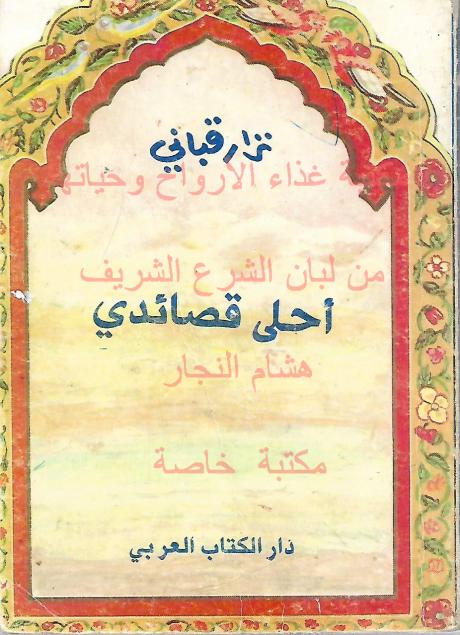 نزار قباني
غذاء الأرواح وحياتها
من لبان الشرع الشريف
أحلى قصائدي
هشام النجار
مكتبة خاصة
دار الكتاب العربي